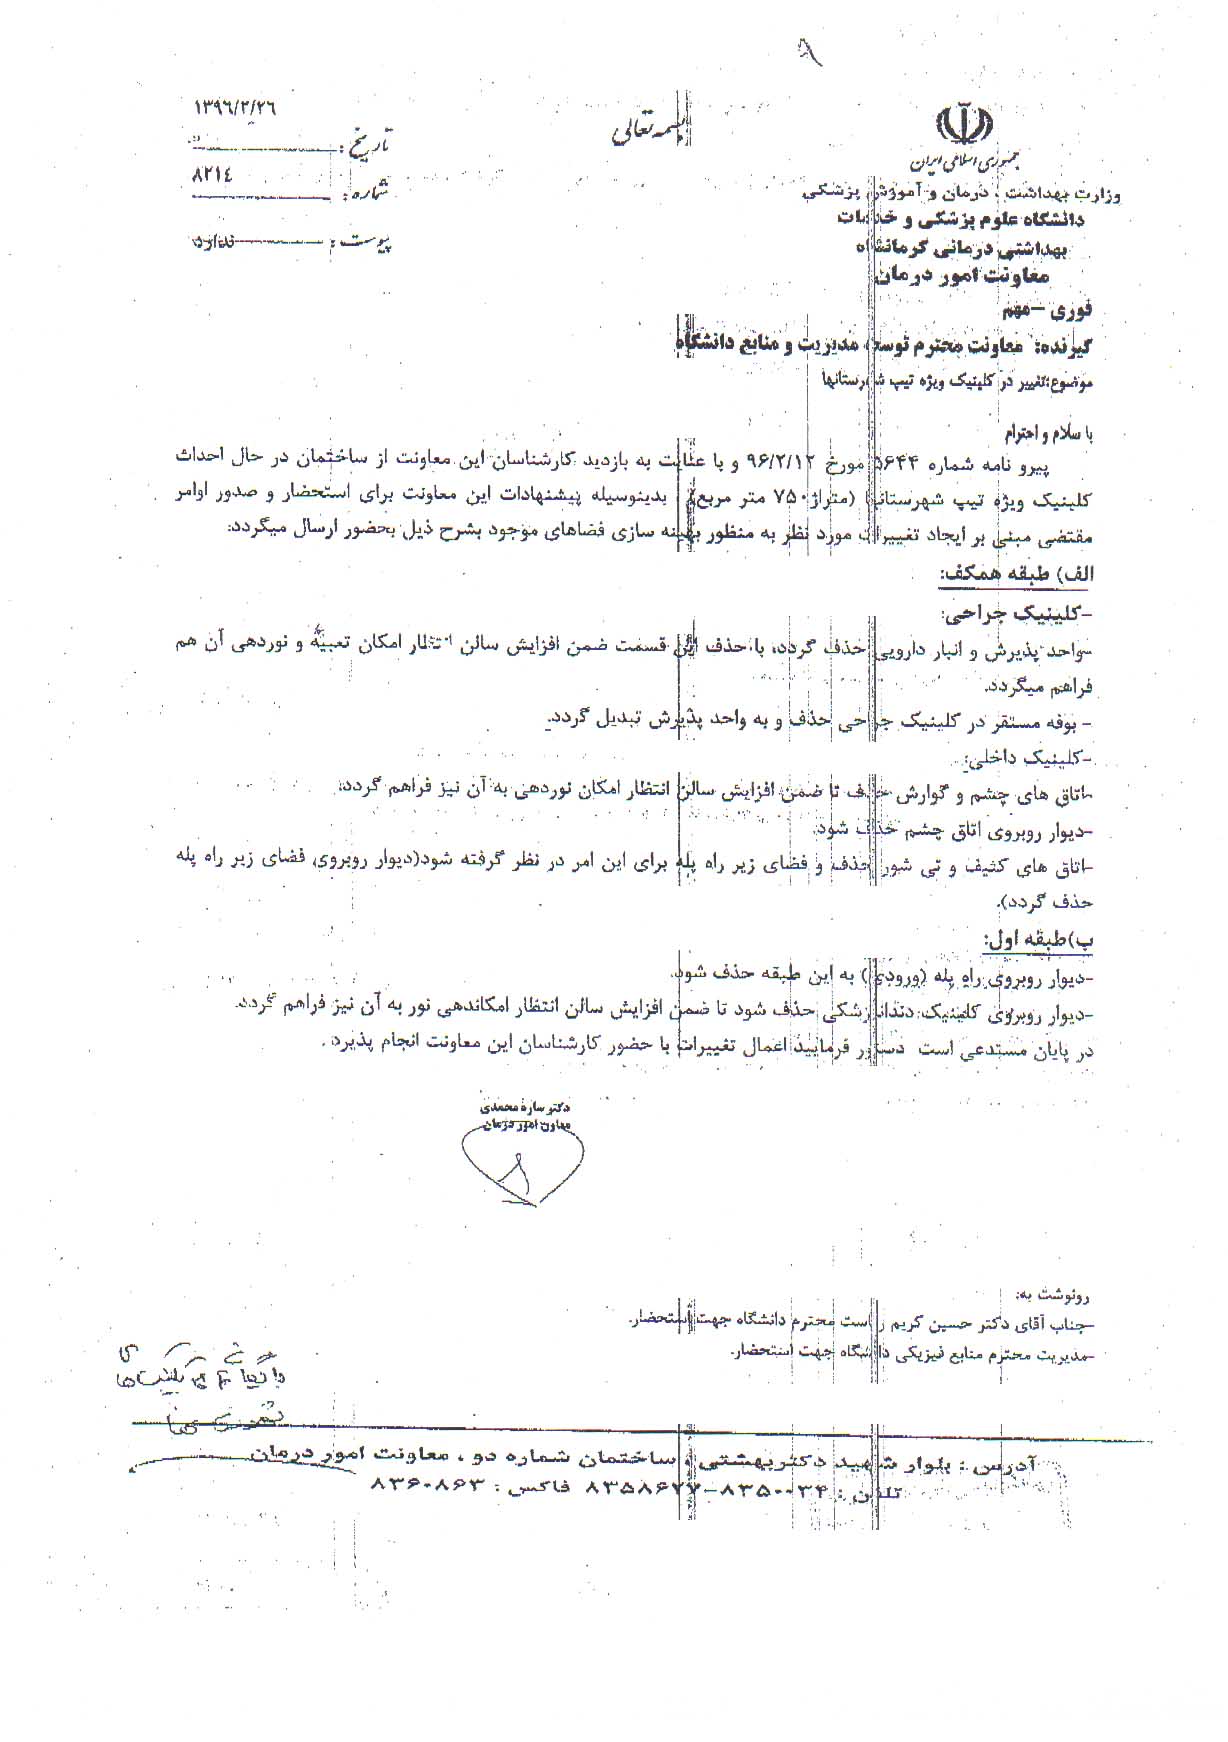 بسمه تعالی
جمهوری اسلامی ایران
وزارت بهداشت ، درمان و آموزش پزشکی
دانشگاه علوم پزشکی و خدمات
بهداشتی درمانی کرمانشاه
معاونت امور درمان
۱۳۹۶/۲/۲۶
تاریخ :
۸۲۱٤
شماره :
پیوست : ندارد
فوری –مهم
گیرنده: معاونت محترم توسعه مدیریت و منابع دانشگاه
موضوع:تغییر در کلینیک ویژه تیپ شهرستانها
با سلام و احترام
پیرو نامه شماره ۵۶۴۴ مورخ ۹۶/۲/۱۲ و با عنایت به بازدید کارشناسان این معاونت از ساختمان در حال احداث
کلینیک ویژه تیپ شهرستانها (متراژ ۷۵۰ متر مربع) بدینوسیله پیشنهادات این معاونت برای استحضار و صدور اوامر
مقتضی مبنی بر ایجاد تغییرات مورد نظر به منظور بهینه سازی فضاهای موجود بشرح ذیل بحضور ارسال میگردد:
الف) طبقه همکف:
-کلینیک جراحی:
-واحد پذیرش و انبار دارویی حذف گردد، با حذف این قسمت ضمن افزایش سالن انتظار امکان تعبیه و نوردهی آن هم
فراهم میگردد.
- بوفه مستقر در کلینیک جراحی حذف و به واحد پذیرش تبدیل گردد.
-کلینیک داخلی:
-اتاق های چشم و گوارش حذف تا ضمن افزایش سالن انتظار امکان نوردهی به آن نیز فراهم گردد.
-دیوار روبروی اتاق چشم حذف شود.
-اتاق های کثیف و تی شور حذف و فضای زیر راه پله برای این امر در نظر گرفته شود(دیوار روبروی فضای زیر راه پله
حذف گردد).
ب)طبقه اول:
-دیوار روبروی راه پله (ورودی) به این طبقه حذف شود.
-دیوار روبروی کلینیک دندانپزشکی حذف شود تا ضمن افزایش سالن انتظار امکاندهی نور به آن نیز فراهم گردد.
در پایان مستدعی است دستور فرمایید اعمال تغییرات با حضور کارشناسان این معاونت انجام پذیرد .
دکتر ساره محمدی
معاون امور درمان
رونوشت به:
-جناب آقای دکتر حسین کریم ریاست محترم دانشگاه جهت استحضار.
-مدیریت محترم منابع فیزیکی دانشگاه جهت استحضار.
آدرس : بلوار شهید دکتربهشتی ، ساختمان شماره دو ، معاونت امور درمان
تلفن : ۸۳۵۰۰۳۴-۸۳۵۸۶۲۷ فاکس : ۸۳۶۰۸۶۳